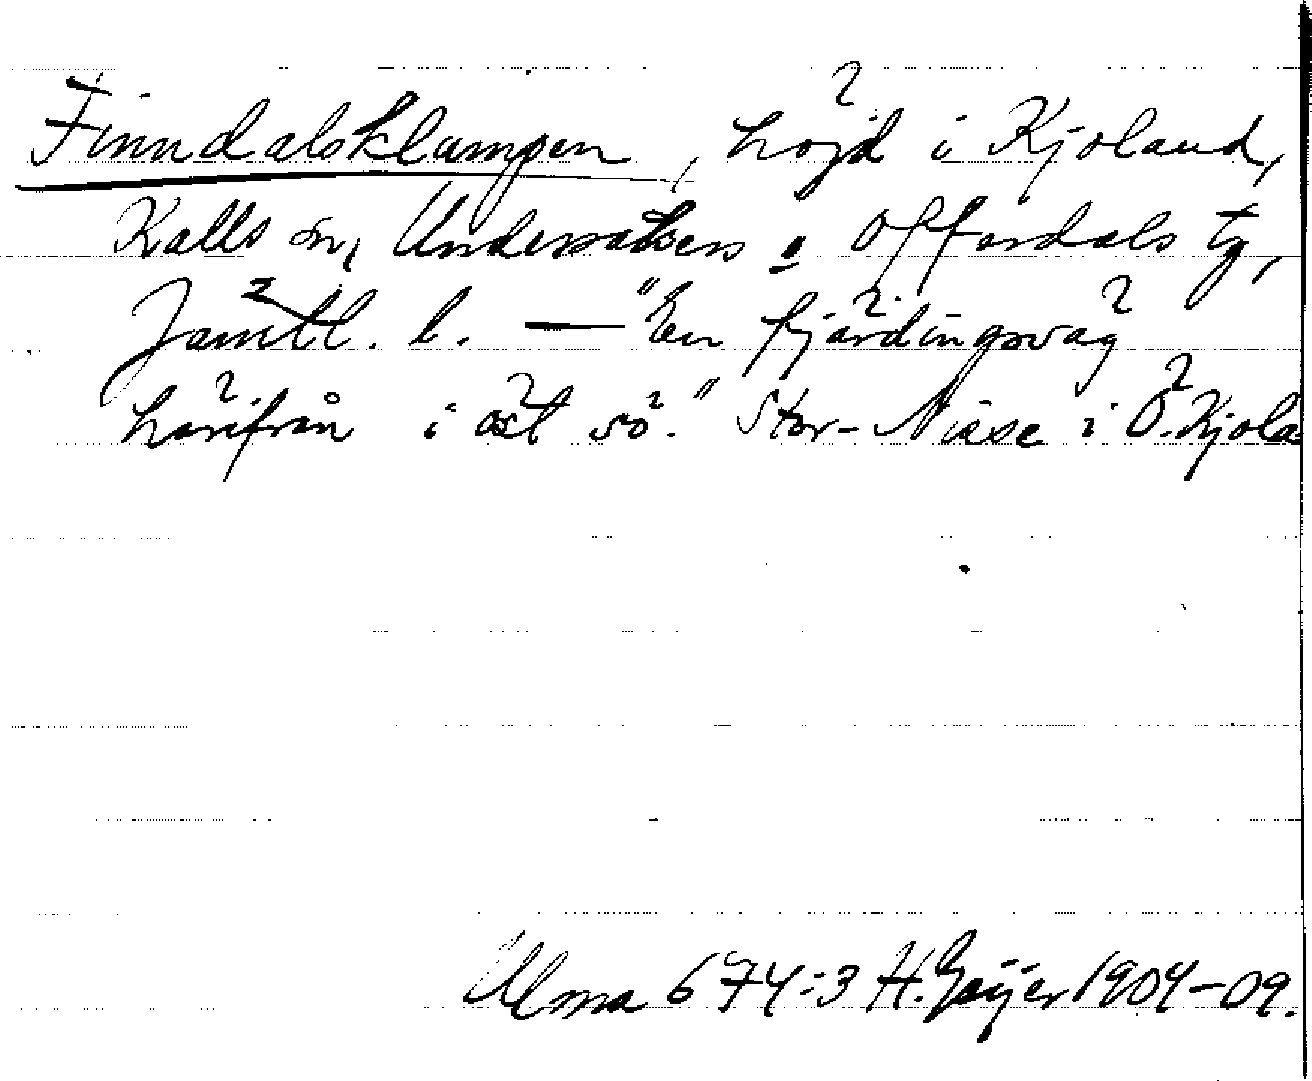 Finndalsklumpen, höjd i Kjoland,
Kalls sn, Undersåkers o Offerdals tg,
Jämtl. l. — "En fjärdingsväg
härifrån i öst sö." Stor-Nisse i Ö. Kjola
Ulma 674:3 H. Geijer 1904-09.